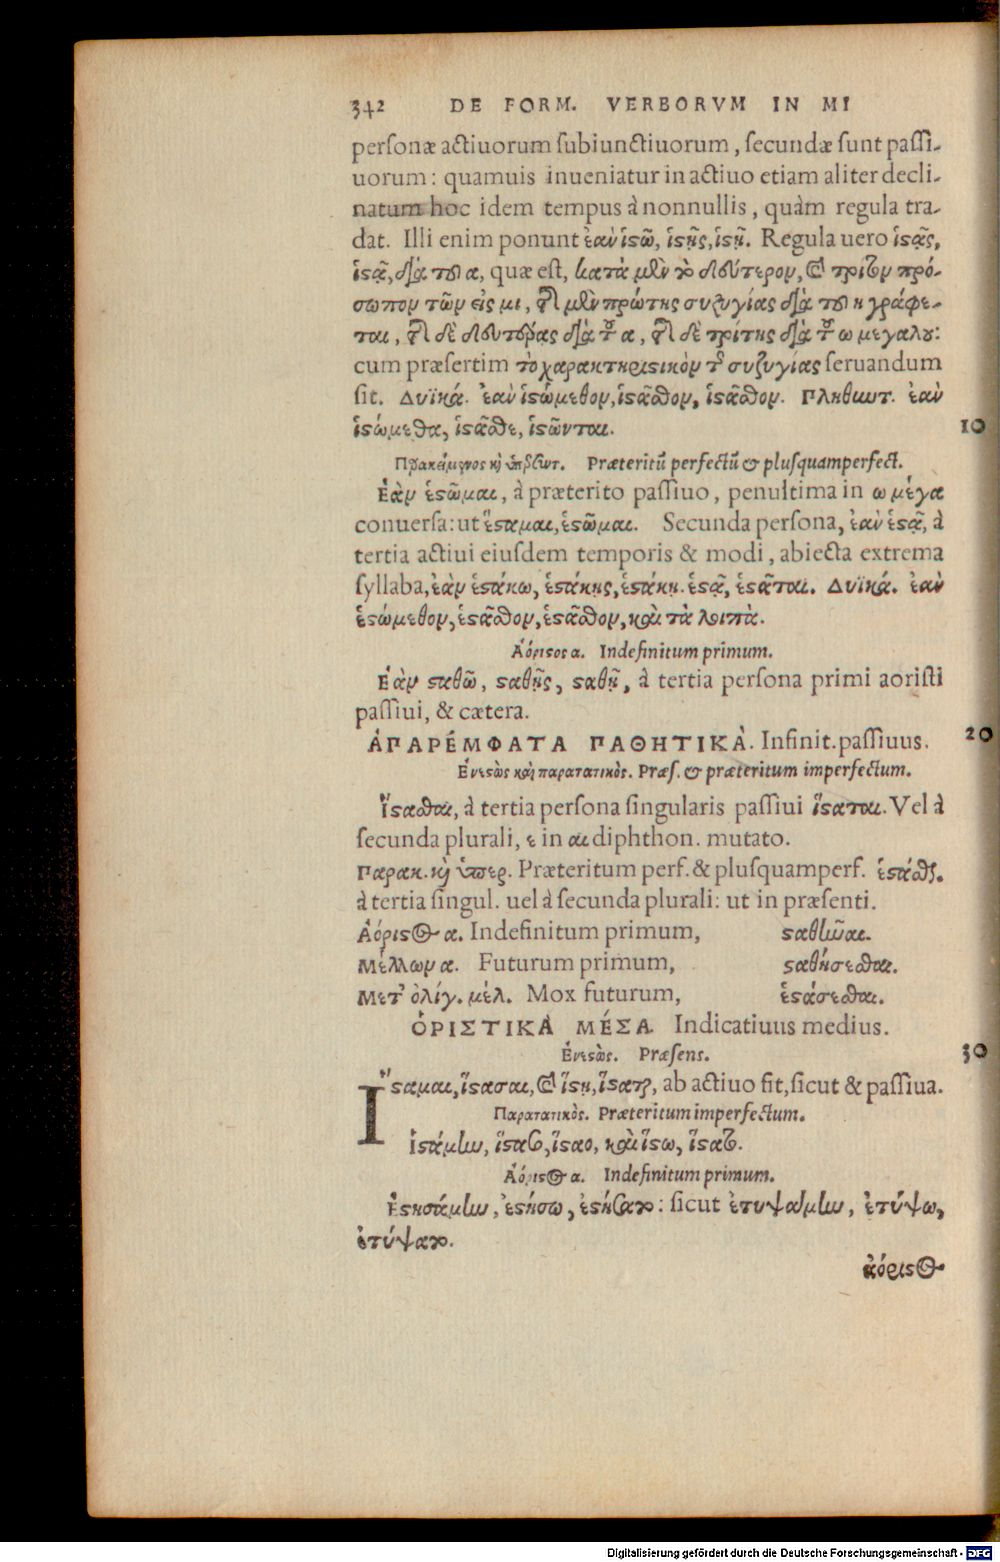 342 DE FORM. VERBORVM IN MI
personæ actiuorum subiunctiuorum, secundæ sunt passi-
uorum: quamuis inueniatur in actiuo etiam aliter decli-
natum hoc idem tempus à nonnullis, quàm regula tra-
dat. Illi enim ponunt ἐὰν ἱστῶ, ἱστῇς, ἱστῇ. Regula uero ἱστᾷς,
ἱστᾷ, διὰ τοῦ α, quæ est, κατὰ μὲν τὸ δεύτερον, καὶ τρίτον πρό-
σωπον τῶν εἰς μι, ἐπὶ μὲν πρώτης συζυγίας διὰ τοῦ η γράφε-
ται, ἐπὶ δὲ δευτέρας διὰ τοῦ α, ἐπὶ δὲ τρίτης διὰ τοῦ ω μεγάλου:
cum præsertim τὸ χαρακτηριστικὸν τῆς συζυγίας seruandum
sit. Δυϊκά. ἐὰν ἱστώμεθον, ἱστᾶσθον, ἱστᾶσθον. Πληθυντ. ἐὰν
ἱστώμεθα, ἱστᾶσθε, ἱστῶνται. 10
Παρακείμενος καὶ ὑπερσυντ. Præteritũ perfectũ & plusquamperfect.
Ἐὰν ἑστῶμαι, à præterito passiuo, penultima in ω μέγα
conuersa: ut ἕσταμαι, ἑστῶμαι. Secunda persona, ἐὰν ἑστᾷ, à
tertia actiui eiusdem temporis & modi, abiecta extrema
syllaba, ἐὰν ἑστάκω, ἑστάκῃς, ἑστάκῃ. ἑστᾷ, ἑστᾶται. Δυϊκά. ἐὰν
ἑστώμεθον, ἑστᾶσθον, ἑστᾶσθον, καὶ τὰ λοιπὰ.
Ἀόριστος α. Indefinitum primum.
Ἐὰν σταθῶ, σταθῇς, σταθῇ, à tertia persona primi aoristi
passiui, & cætera.
ἈΠΑΡΈΜΦΑΤΑ ΠΑΘΗΤΙΚᾺ. Infinit. passiuus. 20
Ἐνεστὼς καὶ παρατατικὸς. Præs. & præteritum imperfectum.
Ἵστασθαι, à tertia persona singularis passiui ἵσταται. Vel à
secunda plurali, ε in αι diphthon. mutato.
Παρακ. καὶ ὑπερ. Præteritum perf. & plusquamperf. ἑστάσθαι.
à tertia singul. uel à secunda plurali: ut in præsenti.
Ἀόριστος α. Indefinitum primum, σταθῆναι.
Μέλλων α. Futurum primum, σταθήσεσθαι.
Μετ' ὀλίγ. μέλ. Mox futurum, ἑστάσεσθαι.
ὉΡΙΣΤΙΚᾺ ΜΈΣΑ. Indicatiuus medius.
Ἐνεστὼς. Præsens. 30
Ἵσταμαι, ἵστασαι, καὶ ἵστῃ, ἵσταται, ab actiuo fit, sicut & passiua.
Παρατατικὸς. Præteritum imperfectum.
Ἱστάμην, ἵστασο, ἵσταο, καὶ ἵστω, ἵστατο.
Ἀόριστος α. Indefinitum primum.
Ἐστησάμην, ἐστήσω, ἐστήσατο: sicut ἐτυψάμην, ἐτύψω,
ἐτύψατο.
ἀόριστος
Digitalisierung gefördert durch die Deutsche Forschungsgemeinschaft - DFG